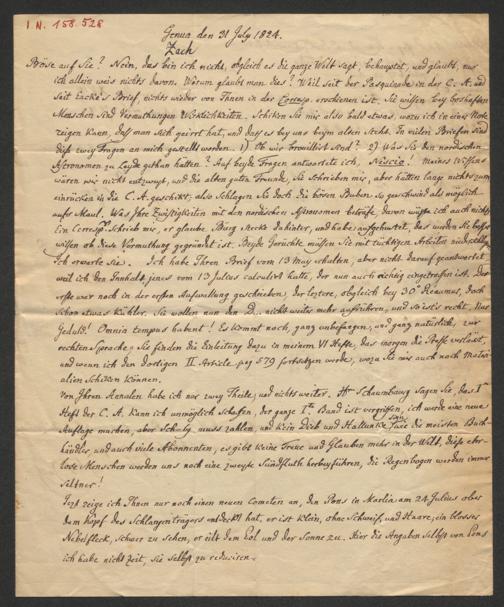 I. N. 158.528
Genua den 31 July 1824.
Zach
Böse auf Sie? Nein, das bin ich nicht, obgleich es die ganze Welt sagt, behauptet, und glaubt, nur
ich allein weis nichts davon. Warum glaubt man das? Weil seit der Pasquinade in der C. A. und
seit Encke's Brief, nichts wieder von Ihnen in der Corresp. erschienen ist. Sie wissen bey boshaften
Menschen sind Vermuthungen Wirklichkeiten. Schiken Sie mir also bald etwas, wozu ich in einer Note
zeigen kann, daß man sich geirrt hat, und daß es bey uns beym alten steht. In vielen Briefen sind
diese zwey Fragen an mich gestellt worden. 1) Ob wir brouillirt sind? 2) Was Sie den nordischen
Astronomen zu Leyde gethan hätten? Auf beyde Fragen antwortete ich, Nescio! Meines Wißens
wären wir nicht entzweyt, und die alten guten Freunde, Sie schrieben mir, aber hätten lange nichts zum
einrücken in die C. A. geschikt; also Schlagen Sie doch die bösen Buben so geschwind als möglich
aufs Maul. Was Ihre Zwistigkeiten mit den nordischen Astronomen betrifft, davon wüßte ich auch nichts.
Ein Corresp. schrieb mir, er glaube, Burg stecke dahinter, und habe aufgehuzt, das werden Sie besser
wissen ob diese Vermuthung gegründet ist. Beyde Gerüchte müssen Sie mit tüchtigen Arbeiten niederschlagen
Ich erwarte Sie. Ich habe Ihren Brief vom 13 May erhalten, aber nicht darauf geantwortet,
weil ich den Innhalt, jenes vom 13 Julius calculirt hatte, der nun auch richtig eingetroffen ist. Der
erste war noch in der ersten Aufwallung geschrieben, der leztere, obgleich bey 30° Réaumur, doch
schon etwas kühler. Sie wollen nun den nichts weiter mehr aufrühren, und so ist's recht. Nur
Geduld! Omnia tempus habent! Es kommt noch, ganz unbefangen, und ganz natürlich, zur
rechten Sprache. Sie finden die Einleitung dazu in meinem VI Hefte, das morgen die Presse verläßt,
und wenn ich den dortigen II Article pag 579 fortsetzen werde, wozu Sie mir auch noch Materi-
alien schiken können.
Von Ihren Annalen habe ich nur zwey Theile, und nichts weiter. Hn Schaumburg sagen Sie, das Ite
Heft der C. A. kann ich unmöglich schafen, der ganze Ite Band ist vergriffen, ich werde eine neue
Auflage machen, aber Schulz muss zahlen und kein Dieb und Hallunke seyn wie die meisten Buch-
händler, und auch viele Abonnenten, es gibt keine Treue und Glauben mehr in der Welt, diese ehr-
lose Menschen werden uns noch eine zweyte Sündfluth herbeyführen, die Regenbogen werden immer
seltner!
Jezt zeige ich Ihnen nur noch einen neuen Cometen an, den Pons in Marlia am 24 Julius ober
dem Kopf des Schlangenträgers entdeckt hat, er ist klein, ohne Schweif, und Haare, ein blosser
Nebelfleck, schwer zu sehen, er eilt dem Pol und der Sonne zu. Hier die Angaben selbst von Pons
ich habe nicht Zeit, sie selbst zu reduciren.